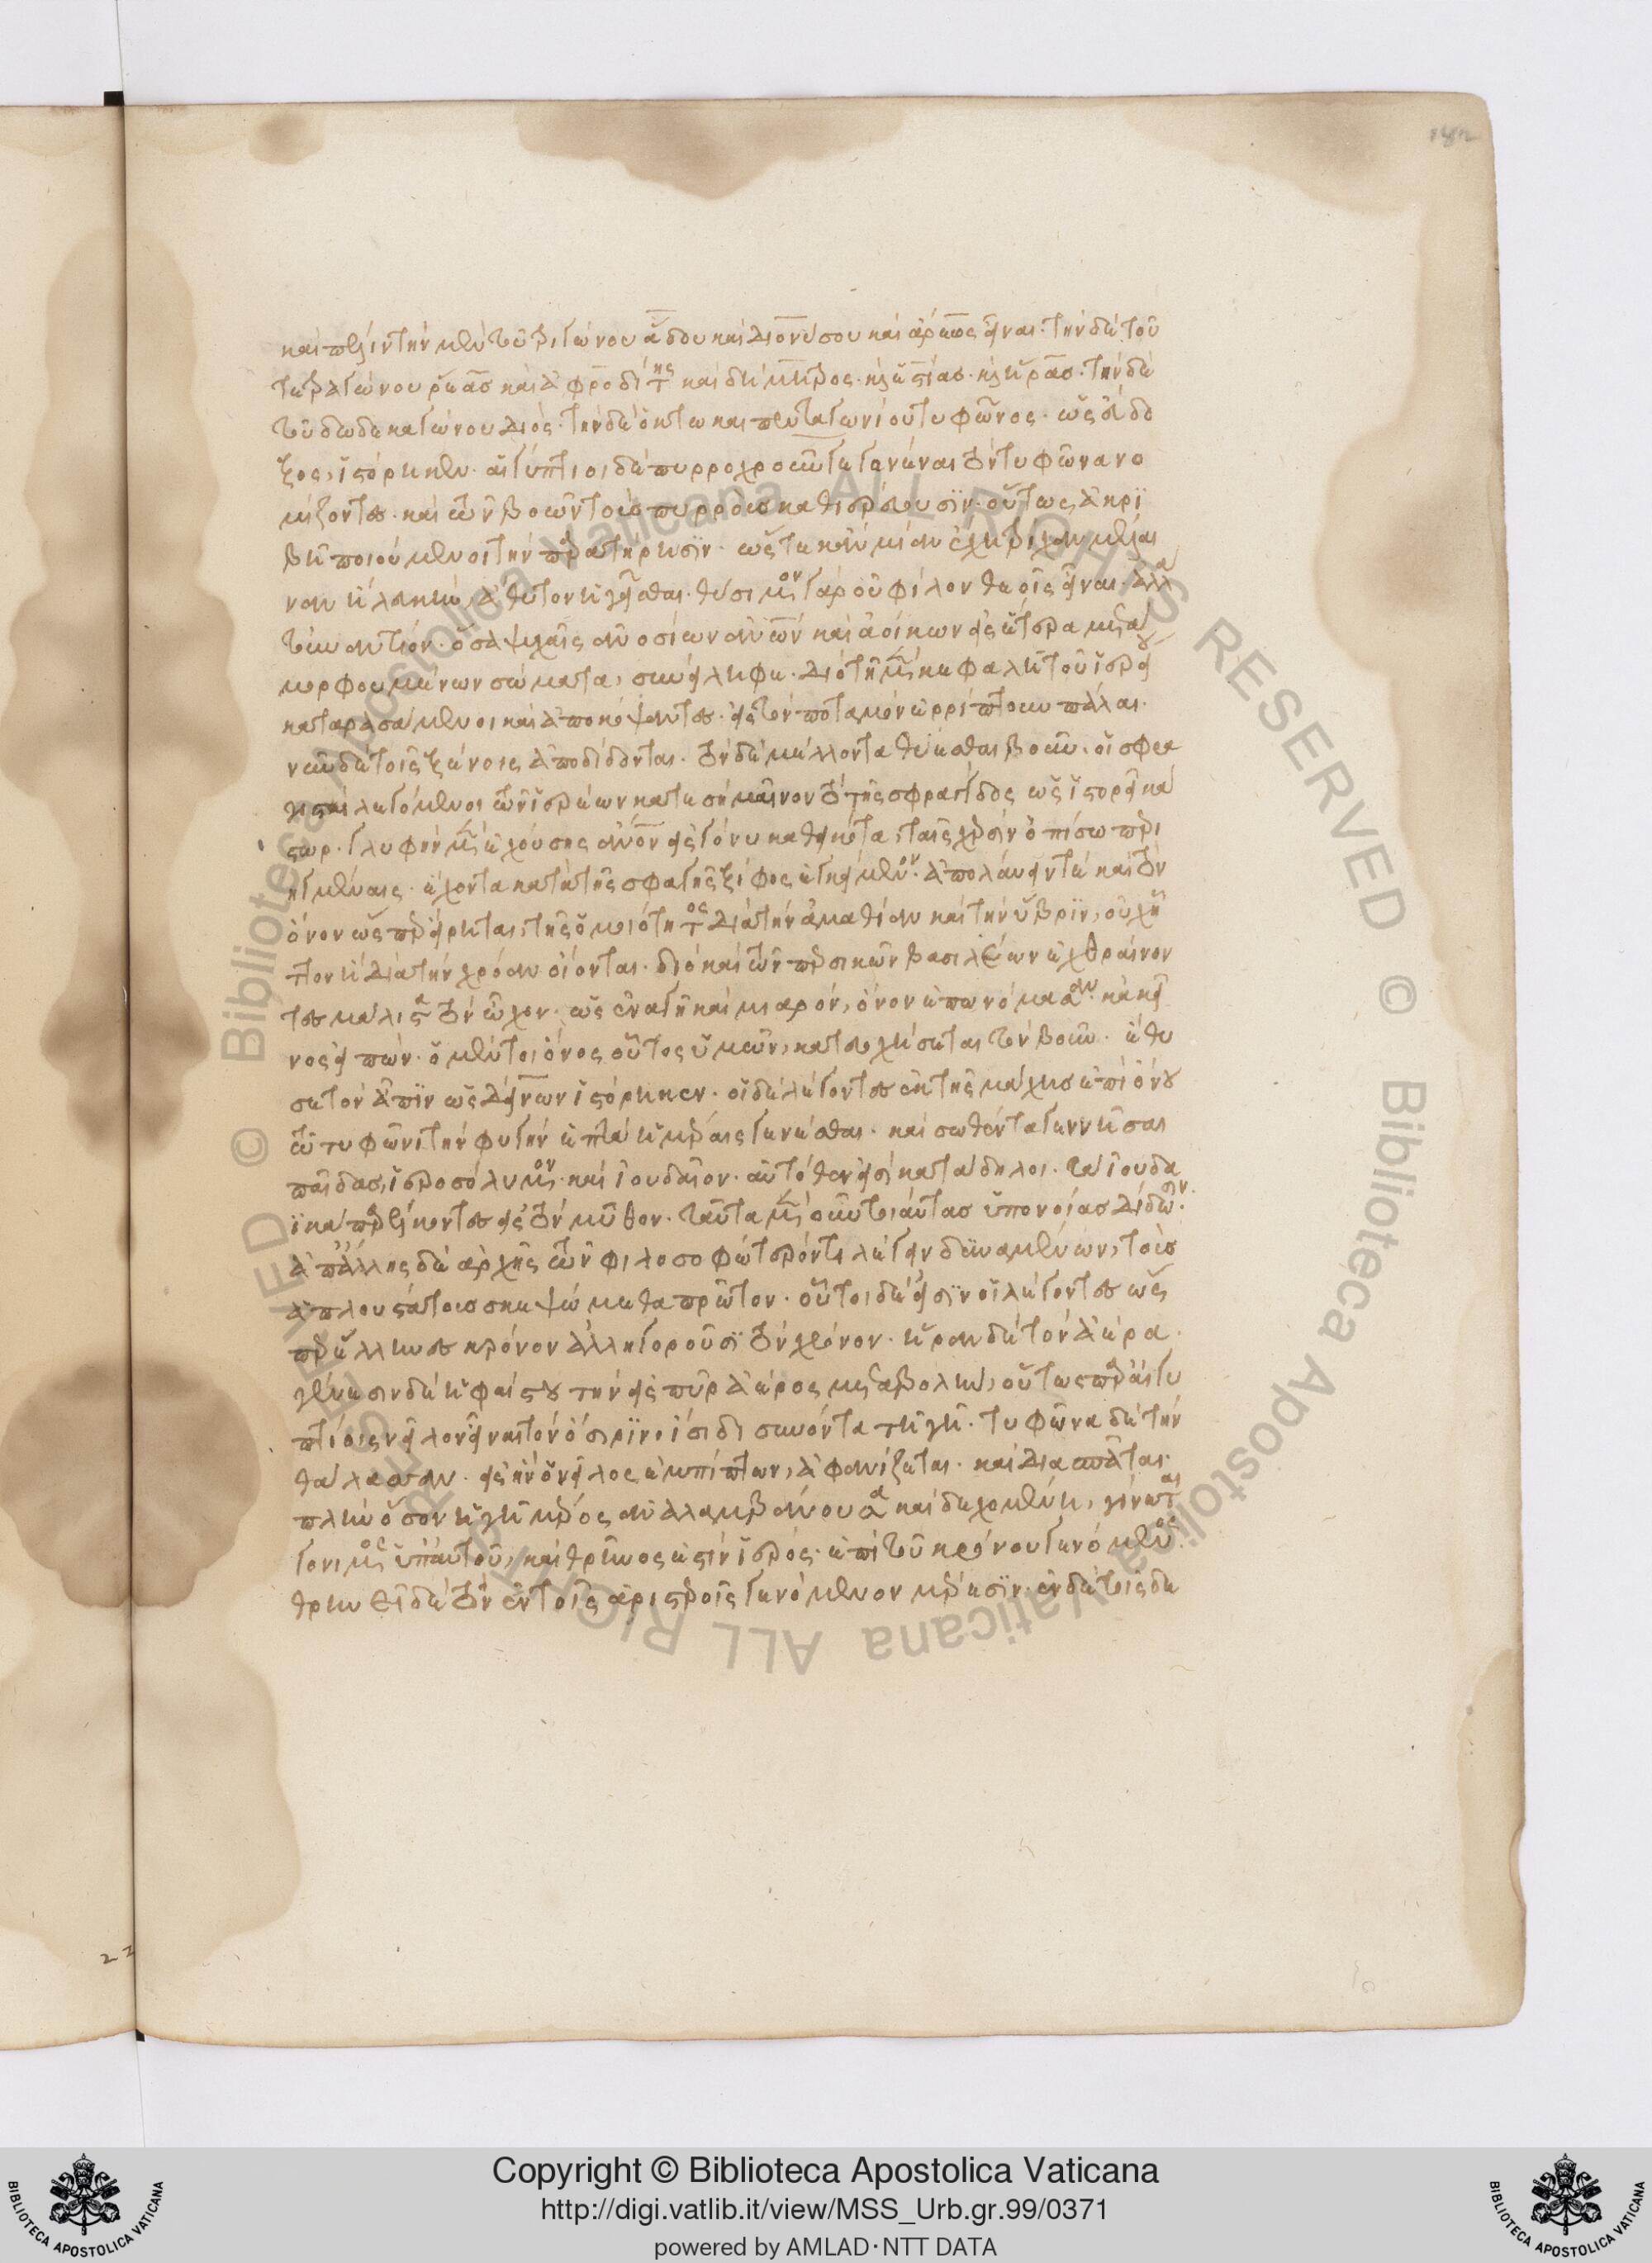 καὶ πάλιν τὴν μὲν τοῦ τριγώνου ἅδου καὶ διονύσου καὶ ἄρεος εἶναι· τὴν δὲ τοῦ
τετραγώνου ῥέας καὶ ἀφροδίτης καὶ δήμητρος· καὶ ἑστίας· καὶ ἥρας· τὴν δὲ
τοῦ δωδεκαγώνου διός· τὴν δὲ ὀκτωκαιπεντηκονταγωνίου τυφῶνος· ὡς εὔδο
ξος, ἱστόρηκεν· αἰγύπτιοι δὲ πυρρόχρουν γεγονέναι τὸν τυφῶνα νο
μίζοντες· καὶ τῶν βοῶν τοὺς πυρροὺς καθιερεύουσιν· οὕτως ἀκρι
βῆ ποιούμενοι τὴν παρατήρησιν· ὥστε κἂν μίαν ἔχῃ τρίχαν μέλαι
ναν ἢ λευκὴν, ἄθυτον ἡγεῖσθαι· θύσιμον γὰρ οὐ φίλον θεοῖς εἶναι· ἀλλὰ
τοὐναντίον· ὅσα ψυχὰς ἀνοσίων ἀνθρώπων καὶ ἀδίκων εἰς ἕτερα μετα
μορφουμένων σώματα, συνείληφε· διὸ τῇ μὲν κεφαλῇ τοῦ ἱερείου
καταρασάμενοι καὶ ἀποκόψαντες· εἰς τὸν ποταμὸν ἐρρίπτουν πάλαι·
νῦν δὲ τοῖς ξένοις ἀποδίδονται· τὸν δὲ μέλλοντα θύεσθαι βοῦν· οἱ σφρα
γισταὶ λεγόμενοι τῶν ἱερέων κατεσημαίνοντο τῆς σφραγίδος ὡς ἱστορεῖ κά
στωρ· γλυφὴν μὲν ἐχούσης ἄνθρωπον εἰς γόνυ καθεικότα, ταῖς χερσὶν ὀπίσω περι
ηγμέναις· ἔχοντα κατὰ τῆς σφαγῆς ξίφος ἐγκείμενον· ἀπολαύειν τε καὶ τὸν
ὄνον ὡς προείρηται, τῆς ὁμοιότητος διὰ τὴν ἀμαθίαν καὶ τὴν ὕβριν, οὐχ ἧτ
τον ἢ διὰ τὴν χρόαν οἴονται· διὸ καὶ τῶν περσικῶν βασιλέων ἐχθραίνον
τες μάλιστα τὸν ὦχον· ὡς ἐναγῆ καὶ μιαρόν, ὄνον ἐπωνόμασαν· κἀκεῖ
νος εἰπών· ὁ μέντοι ὄνος οὗτος ὑμῶν, κατευωχήσεται τὸν βοῦν· ἔθυ
σε τὸν ἆπιν ὡς δείνων ἱστόρηκεν· οἱ δὲ λέγοντες ἐκ τῆς μάχης ἐπὶ ὄνου
τῷ τυφῶνι τὴν φυγὴν ἑπτὰ ἡμέρας γενέσθαι· καὶ σωθέντα γεννῆσαι
παῖδας, ἱεροσόλυμον· καὶ ἰουδαῖον· αὐτόθεν εἰσὶ κατάδηλοι· τὰ ἰουδα
ϊκὰ παρέλκοντες εἰς τὸν μῦθον· ταῦτα μὲν οὖν τοιαύτας ὑπονοίας δίδωσιν·
ἀπ' ἄλλης δὲ ἀρχῆς τῶν φιλοσοφώτερόν τι λέγειν δυναμένων, τοὺς
ἁπλουστάτους σκεψώμεθα πρῶτον· οὗτοι δέ εἰσιν οἱ λέγοντες ὡς
παρ' ἕλληνες κρόνον ἀλληγοροῦσι τὸν χρόνον· ἥραν δὲ τὸν ἀέρα·
γένεσιν δὲ ἡφαίστου τὴν εἰς πῦρ ἀέρος μεταβολὴν, οὕτως παρ' αἰγυ
πτίοις νεῖλον εἶναι τὸν ὄσιριν ἴσιδι συνόντα τῇ γῇ· τυφῶνα δὲ τὴν
θάλασσαν· εἰς ἣν ὁ νεῖλος ἐμπίπτων, ἀφανίζεται· καὶ διασπᾶται·
πλὴν ὅσον ἡ γῆ μέρος ἀναλαμβάνουσα καὶ δεχομένη, γίνεται
γόνιμος ὑπ' αὐτοῦ, καὶ θρῆνος ἐστὶν ἱερὸς· ἐπὶ τοῦ κρόνου γενόμενος·
θρηνεῖ δὲ τὸν ἐν τοῖς ἀριστεροῖς γενόμενον μέρεσιν· ἐν δὲ τοῖς δε
Copyright © Biblioteca Apostolica Vaticana
http://digi.vatlib.it/view/MSS_Urb.gr.99/0371
powered by AMLAD·NTT DATA